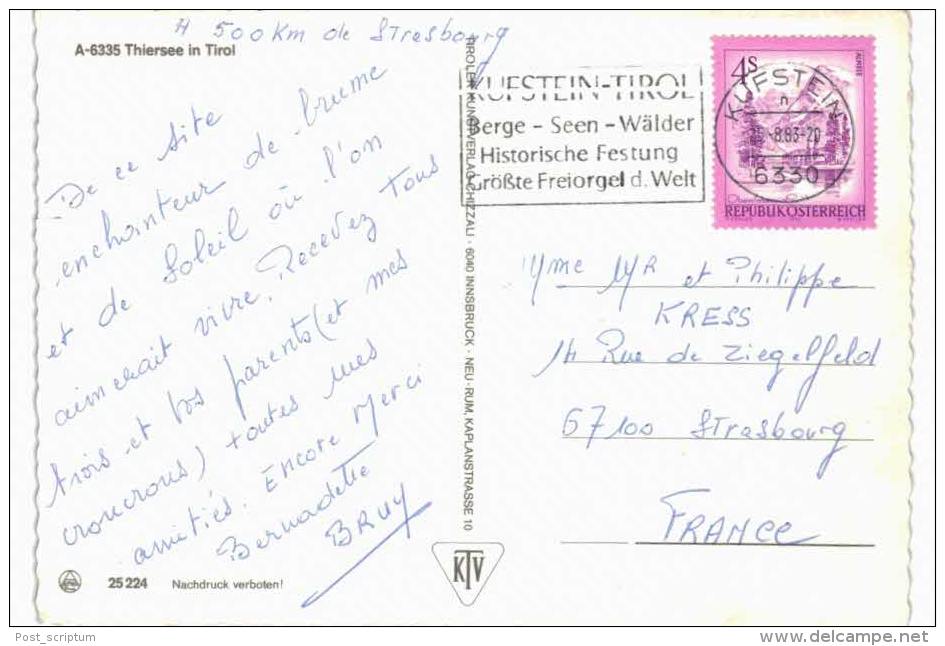 A 500 Km de Strasbourg
A-6335 Thiersee in Tirol
De ce site
enchanteur de brume
et de Soleil où l'on
aimerait vivre. Recevez tous
trois et vos parents (et mes
croucrous) toutes mes
amitiés. Encore Merci
Bernadette
BRUY
25 224 Nachdruck verboten!
TIROLER KUNSTVERLAG CHIZZALI · 6040 INNSBRUCK · NEU-RUM, KAPLANSTRASSE 10
KTV
KUFSTEIN-TIROL
Berge - Seen - Wälder
Historische Festung
Größte Freiorgel d. Welt
4S
ALMSEE
KUFSTEIN
n
.-8.83-20
6330
REPUBLIK ÖSTERREICH
Mme MR et Philippe
KRESS
14 Rue de Ziegelfeld
67100 Strasbourg
FRANCE
Post_scriptum
www.delcampe.net